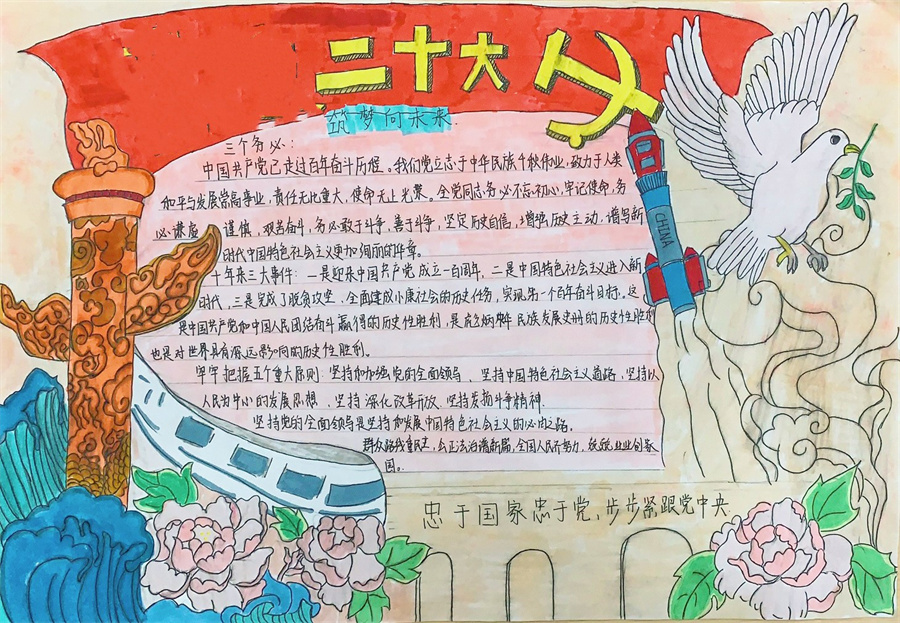 二十大
筑梦向未来
三个务必:
中国共产党已走过百年奋斗历程。我们党立志于中华民族千秋伟业,致力于人类
和平与发展崇高事业,责任无比重大,使命无上光荣。全党同志务必不忘初心,牢记使命,务
必谦虚 谨慎、艰苦奋斗,务必敢于斗争,善于斗争,坚定历史自信,增强历史主动,谱写新
时代中国特色社会主义更加绚丽的华章。
十年来三大事件:一是迎来中国共产党成立一百周年,二是中国特色社会主义进入新
时代,三是完成了脱贫攻坚、全面建成小康社会的历史任务,实现第一个百年奋斗目标。这
是中国共产党和中国人民团结奋斗赢得的历史性胜利,是 民族发展史册的历史性胜利
也是对世界具有深远影响的历史性胜利。
牢牢把握五个重大原则:坚持和加强党的全面领导、坚持中国特色社会主义道路、坚持以
人民为中心的发展思想、坚持深化改革开放、坚持发扬斗争精神.
坚持党的全面领导是坚持和发展中国特色社会主义的必由之路,
群众路线 ,公正法治谱新篇,全国人民齐努力,兢兢业业创家
国。
CHINA
忠于国家忠于党,步步紧跟党中央